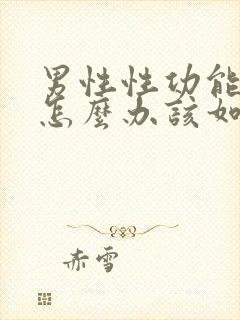 男性性功能
怎麼办該如
赤雪